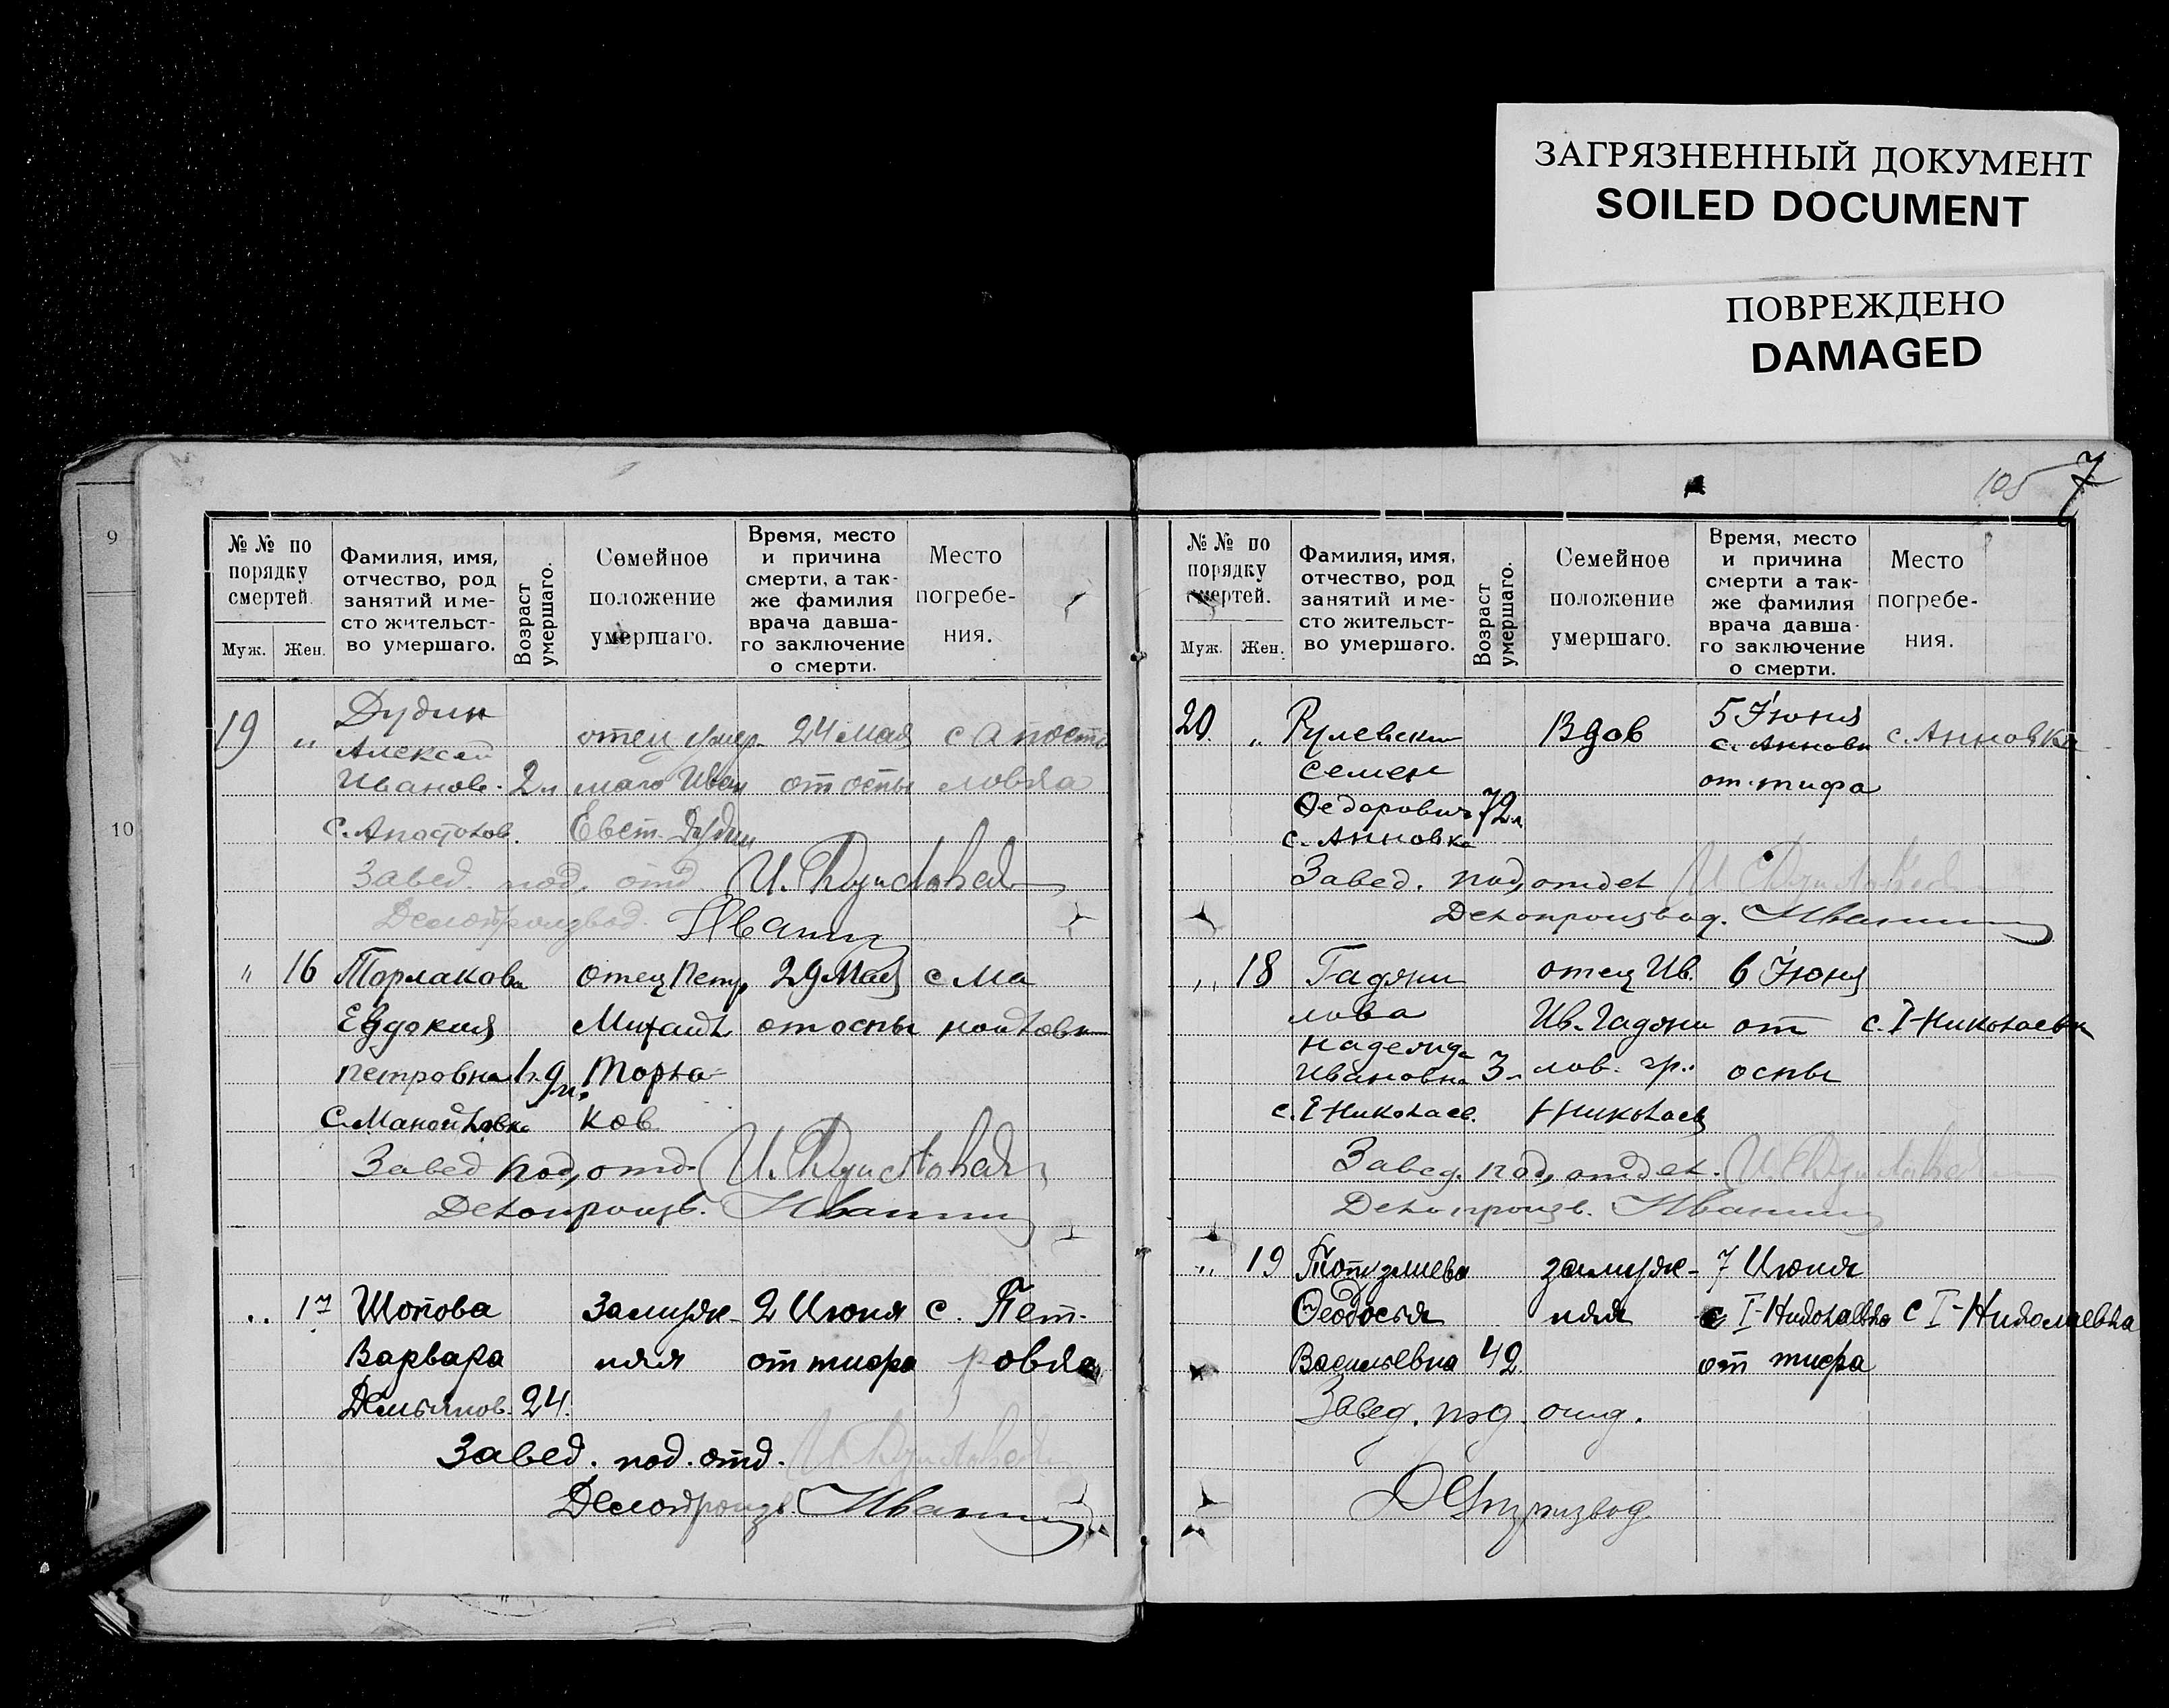 ЗАГРЯЗНЕННЫЙ ДОКУМЕНТ
SOILED DOCUMENT
ПОВРЕЖДЕНО
DAMAGED
9
10
1
№ № по порядку смертей.
Муж. Жен.
Фамилия, имя, отчество, род занятий и место жительство умершаго.
Возраст умершаго.
Семейное положение умершаго.
Время, место и причина смерти, а также фамилия врача давшаго заключение о смерти.
Место погребения.
19 „ Дудин
Алексей отец 24 Мая с Апосто
Иванов. 2 л маго Иван от оспы ловка
с. Апостолов. Евст. Дудин
Завед. под. отд.
Делопроизвод. Иванин
„ 16 Торлакова отец Петр 29 Мая с Ма
Евдокия Михаил от оспы нойловка
Петровна 1 г. Торла
с. Манойловка ков
Завед под, отд.
Делопроизв. Иванин
„ 17 Шопова Замуж- 2 Июня с. Пет-
Варвара няя от тифа ровка
Демьянов. 24.
Завед. под. отд.
Делопроизв. Иванин
105 7
№ № по порядку смертей.
Муж. Жен.
Фамилия, имя, отчество, род занятий и место жительство умершаго.
Возраст умершаго.
Семейное положение умершаго.
Время, место и причина смерти а также фамилия врача давшаго заключение о смерти.
Место погребения.
20. „ Рулевски Вдов 5 Июня
с. Анновк с. Анновка
Семен от тифа
Федорович 72 л.
с. Анновка
Завед. под, отдел
Делопроизвод. Иванин
„ 18 Гаджи отец Ив. 6 Июня
лова Ив. Гаджи от с. I-Николаевка
Надежда
Ивановна 3 л лов. гр. оспы
с. I Николаев. I Николаев
Завед. под, отдел.
Делопроизв. Иванин
„ 19 замуж- 7 Июня
Феодосья няя с I-Николаевка с I-Николаевка
Васильевна 42 от тифа
Завед. под. отд.
Делопроизвод.